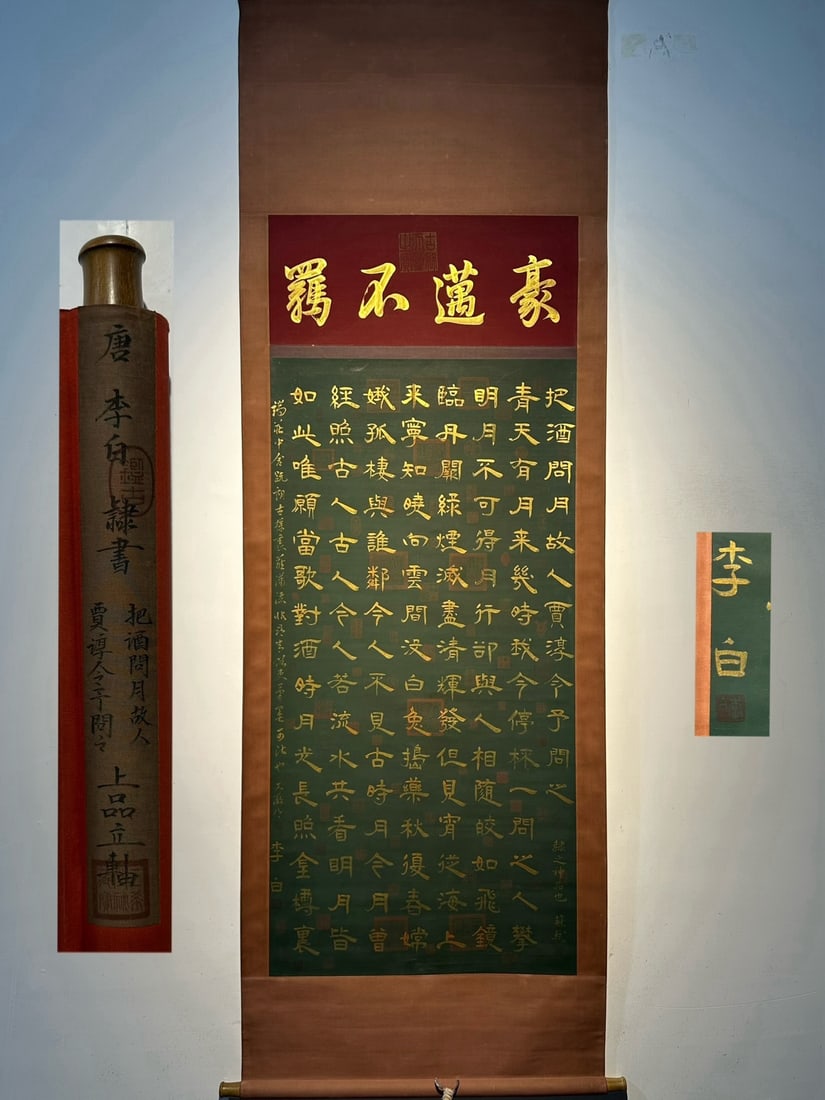 豪邁不羈
把酒問月故人賈淳令予問之
青天有月来幾時我今停杯一問之人攀
明月不可得月行卻與人相隨皎如飛鏡
臨丹闕綠煙滅盡清輝發但見宵從海上
来寧知曉向雲間没白兔搗藥秋復春嫦
娥孤棲與誰鄰今人不見古時月今月曾
經照古人古人今人若流水共看明月皆
如此唯願當歌對酒時月光長照金樽裏
李白
唐李白隸書
把酒問月故人
賈淳令予問之
上品立軸
李白